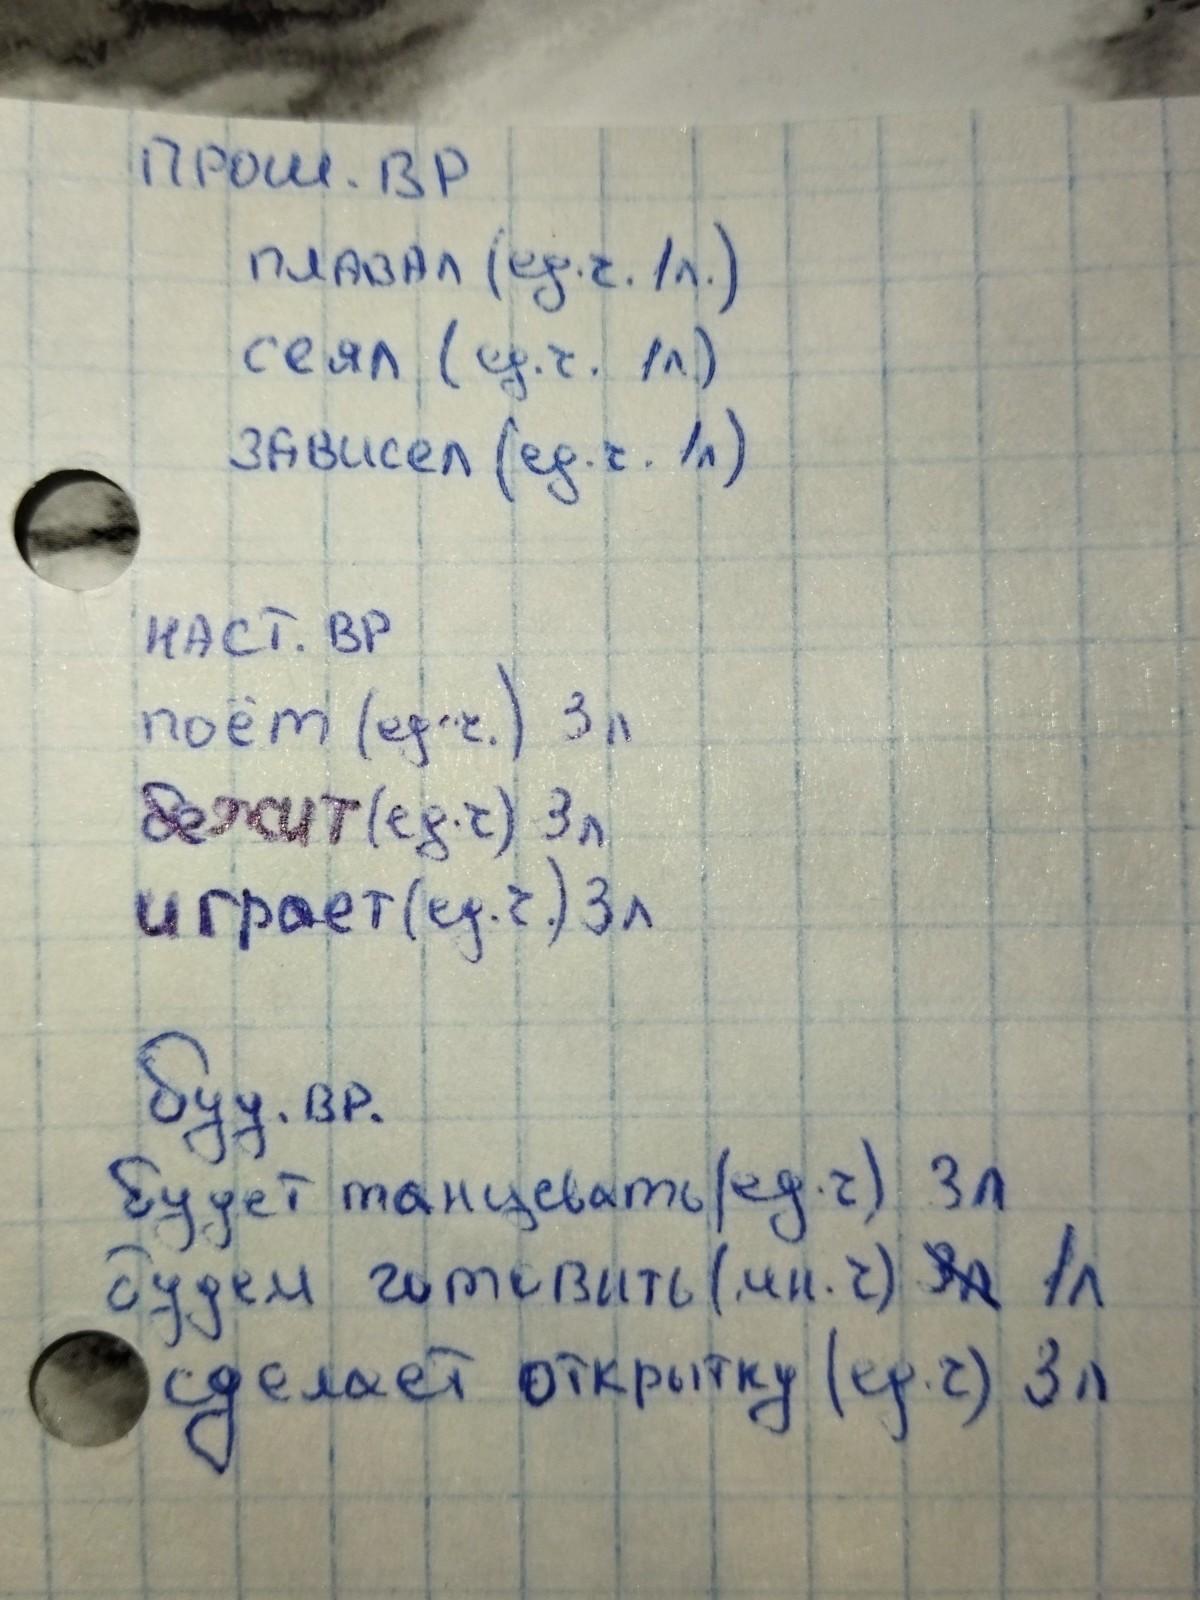 ПРОШ. ВР
ПЛАВАЛ (ед.ч. 1л.)
СЕЯЛ (ед.ч. 1л)
ЗАВИСЕЛ (ед.ч. 1л)
НАСТ. ВР
поёт (ед.ч.) 3л
бежит (ед.ч) 3л
играет (ед.ч.) 3л
буу. ВР.
будет танцевать (ед.ч) 3л
будем готовить (мн.ч) 1л
сделает открытку (ед.ч) 3л